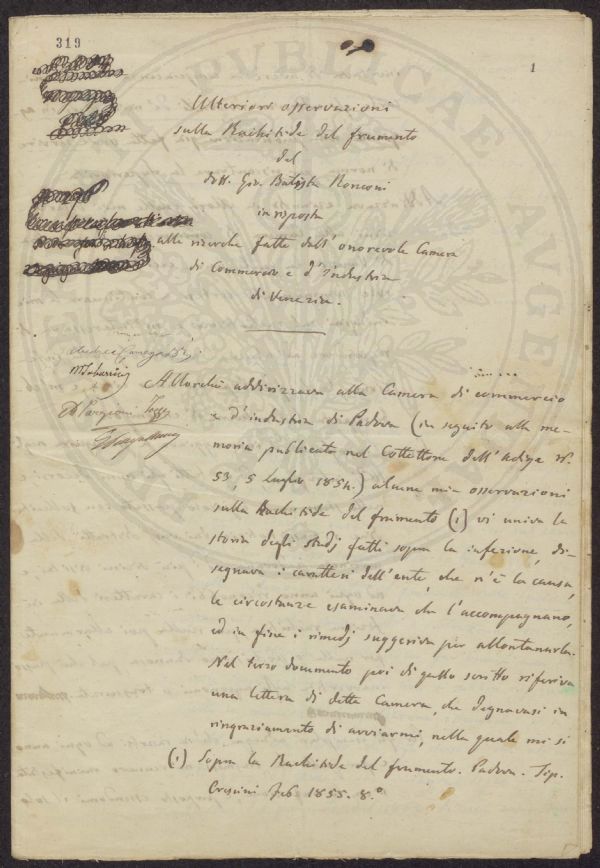 319
1
Ulteriori osservazioni
sulla Rachitide del frumento
del
dott. Gio. Batista Ronconi
in risposta
alle ricerche fatte dall'onorevole Camera
di Commercio e d'Industria
di Venezia.
Allorchè addirizzava alla Camera di commercio
e d'industria di Padova (in seguito alla me-
moria pubblicata nel Collettore dell'Adige N.
53, 5 luglio 1854.) alcune mie osservazioni
sulla Rachitide del frumento (1) vi univa la
storia degli studj fatti sopra la infezione, di-
segnava i caratteri dell'ente, che n'è la causa,
le circostanze esaminava che l'accompagnano,
ed in fine i rimedj suggeriva per allontanarla.
Nel terzo documento poi di quello scritto riferiva
una lettera di detta Camera, che degnavasi in
ringraziamento di avviarmi, nella quale mi si
(1) Sopra la Rachitide del frumento. Padova. Tip.
Crescini Feb 1855. 8.°